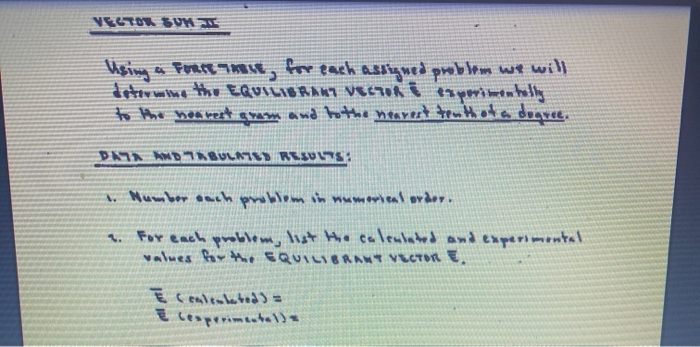 VECTOR SUM II
Using a FORCE TABLE, for each assigned problem we will
determine the EQUILIBRANT VECTOR E experimentally
to the nearest gram and to the nearest tenth of a degree.
DATA AND TABULATED RESULTS:
1. Number each problem in numerical order.
2. For each problem, list the calculated and experimental
values for the EQUILIBRANT VECTOR E.
E (calculated) =
E (experimental) =